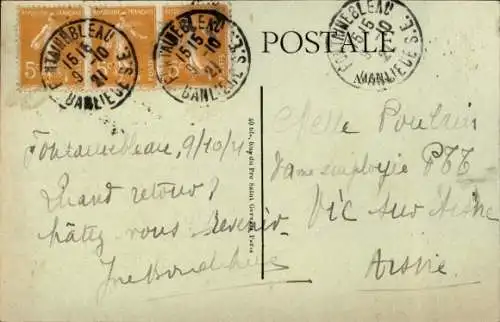 FONTAINEBLEAU S.-E.
15 15
9 -10
21
BANLIEUE
FONTAINEBLEAU S.-E.
15 15
9 -10
21
BANLIEUE
FONTAINEBLEAU S.-E.
15 15
9 -10
21
BANLIEUE
POSTALE
Fontainebleau, 9/10/21
Quand retour?
hâtez vous revenir.
40 bis, Rue du Pré Saint Gervais, Pantin
Melle Poulain
Dame employée PTT
Vic sur Aisne
Aisne